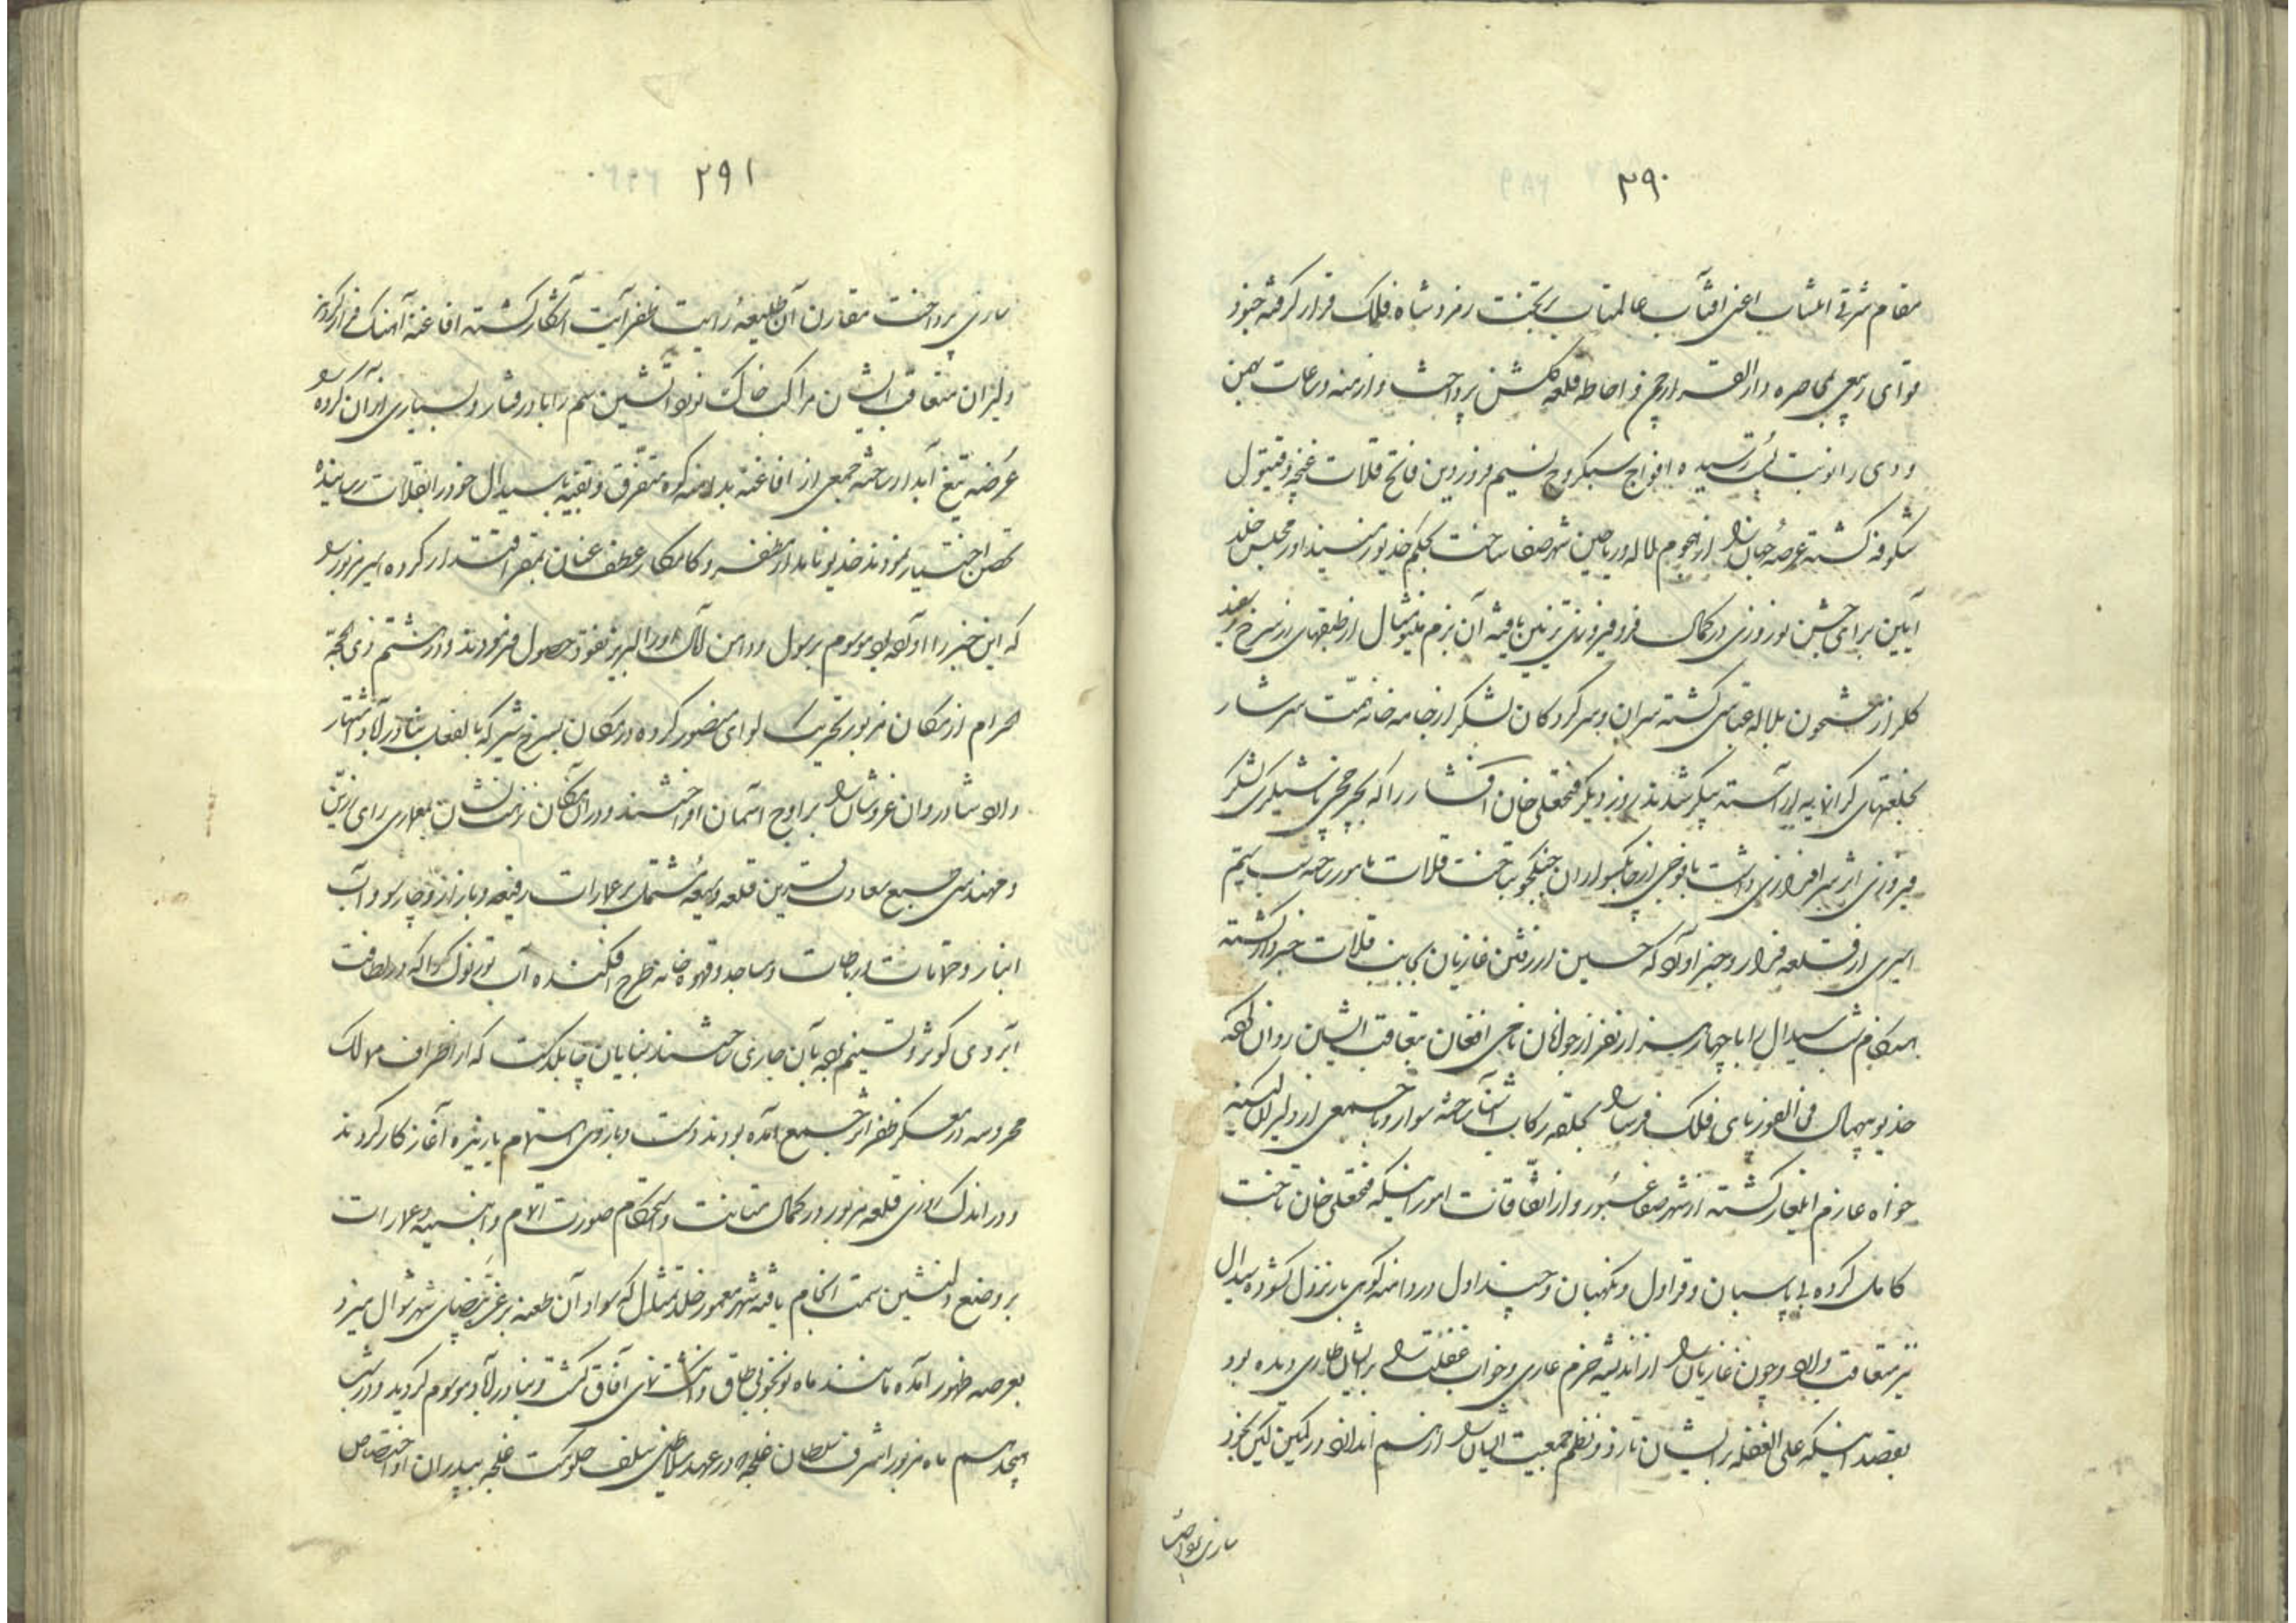 ۲۹۰
مقام شرقی انتساب اعنی آفتاب عالمتاب بر تخت زمردشاه فلک قرار گرفته جنود
قوای ربیعی بمحاصره دار القرار چمن و احاطه قلعه گلشن پرداخت و ازمنه و ساعات بهمن
و دی را نوبت بپی رسیده افواج سبکروح نسیم فروردین فاتح قلات غنچه و قیتول
شکوفه گشته عرصه جهان را از هجوم لاله و ریاحین شهر صفا ساخت بحکم خدیو جمشید اورنگ مجلس خلد
آیین برای جشن نوروزی در کمال فر و فیروزی تزیین یافته آن بزم مینو مثال از طبقهای زر سرخ و سفید
گلزار مشحون بلاله عباسی گشته سران و سرکردگان لشکر از جامه خانه همت سرشار
بخلعتهای گرانمایه آراسته پیکر شدند روز دیگر فتحعلی خان افشار را که بچرخچی باشیگری لشکر
فیروزی اثر سرافرازی داشت با فوجی از چابکسواران جنگجو بتاخت قلات مامور ساخته شب سیم
اسیری از قلعه فرار و خبر آورد که حسین از رفتن غازیان بجانب قلات خبردار گشته
هنگام شب سیدال را با چهار هزار نفر از جوانان نامی افغان بتعاقب ایشان روان نموده
خدیو بیهمال فی الفور پای فلک فرسا را بحلقه رکاب آشنا ساخته سوار و با جمعی از دلیران کینه
خواه عازم ایلغار گشته از شهر صفا عبور و از اتفاقات امور اینکه فتحعلی خان تاخت
کامل کرده بی پاسبان و قراول و نگهبان و چنداول در دامنه کوهی بار نزول گشوده سیدال
نیز متعاقب وارد و چون غازیان را از اندیشه حزم عاری و خواب غفلت را بر ایشان طاری دیده بود
بقصد اینکه علی الغفله بر ایشان تازد و نظم جمعیت ایشان را از هم اندازد در کمین کین بخود
سازی پرداخت
۲۹۱
سازی پرداخت مقارن آن طلیعه رایت ظفر آیت آشکار گشته افاغنه آهنگ فرار کردند
دلیران متعاقب ایشان مراکب خاک نورد آتشین سم را بادرفتار و بسیاری از آن گروه را
عرضه تیغ آبدار ساخته جمعی از افاغنه بدامنه کوه متفرق و بقیه با سیدال خود را بقلات رسانیده
تحصن اختیار نمودند خدیو نامدار مظفر و کامکار عطف عنان بمقر اقتدار کرده اسیر مزبور را
که این خبر را آورده بود موسوم برسول و دامن آمال او را لبریز نقود حصول فرمودند و در هشتم ذی حجه
الحرام از مکان مزبور تحریک لوای منصور کرده در مکان سرخ شیر که بالفعل بنادرآباد اشتهار
دارد شادروان عز و شان را بر اوج آسمان افراختند و در آن مکان نزهت نشان بمعماری رای رزین
و مهندسی طبع سعادت قرین قلعه وسیعه مشتمل بر عمارات رفیعه و بازار و چارسو و آب
انبار و حمامات و رباطات و مساجد و قهوه خانه طرح افکنده آب تورنوک را که در لطافت
آبروی کوثر و تسنیم بود بآن جاری ساختند بنایان چابکدست که از اطراف ممالک
محروسه در معسکر ظفر اثر جمع آمده بودند دست و بازوی اهتمام یازیده آغاز کار کردند
و در اندک روزی قلعه مزبور در کمال متانت و استحکام صورت اتمام و ابنیه و عمارات
بر وضع دلنشین سمت انجام یافته شهر معمور خلد تمثال که سواد آن طعنه بر غره بیضای شهر شوال میزد
بعرصه ظهور آمده مانند ماه نو بخوبی طاق و انگشت نمای آفاق گشت و بنادرآباد موسوم گردید و در شب
هیجدهم ماه مزبور اشرف سلطان غلجه که در عهد سلاطین سلف حکومت غلجه بپدران او اختصاص